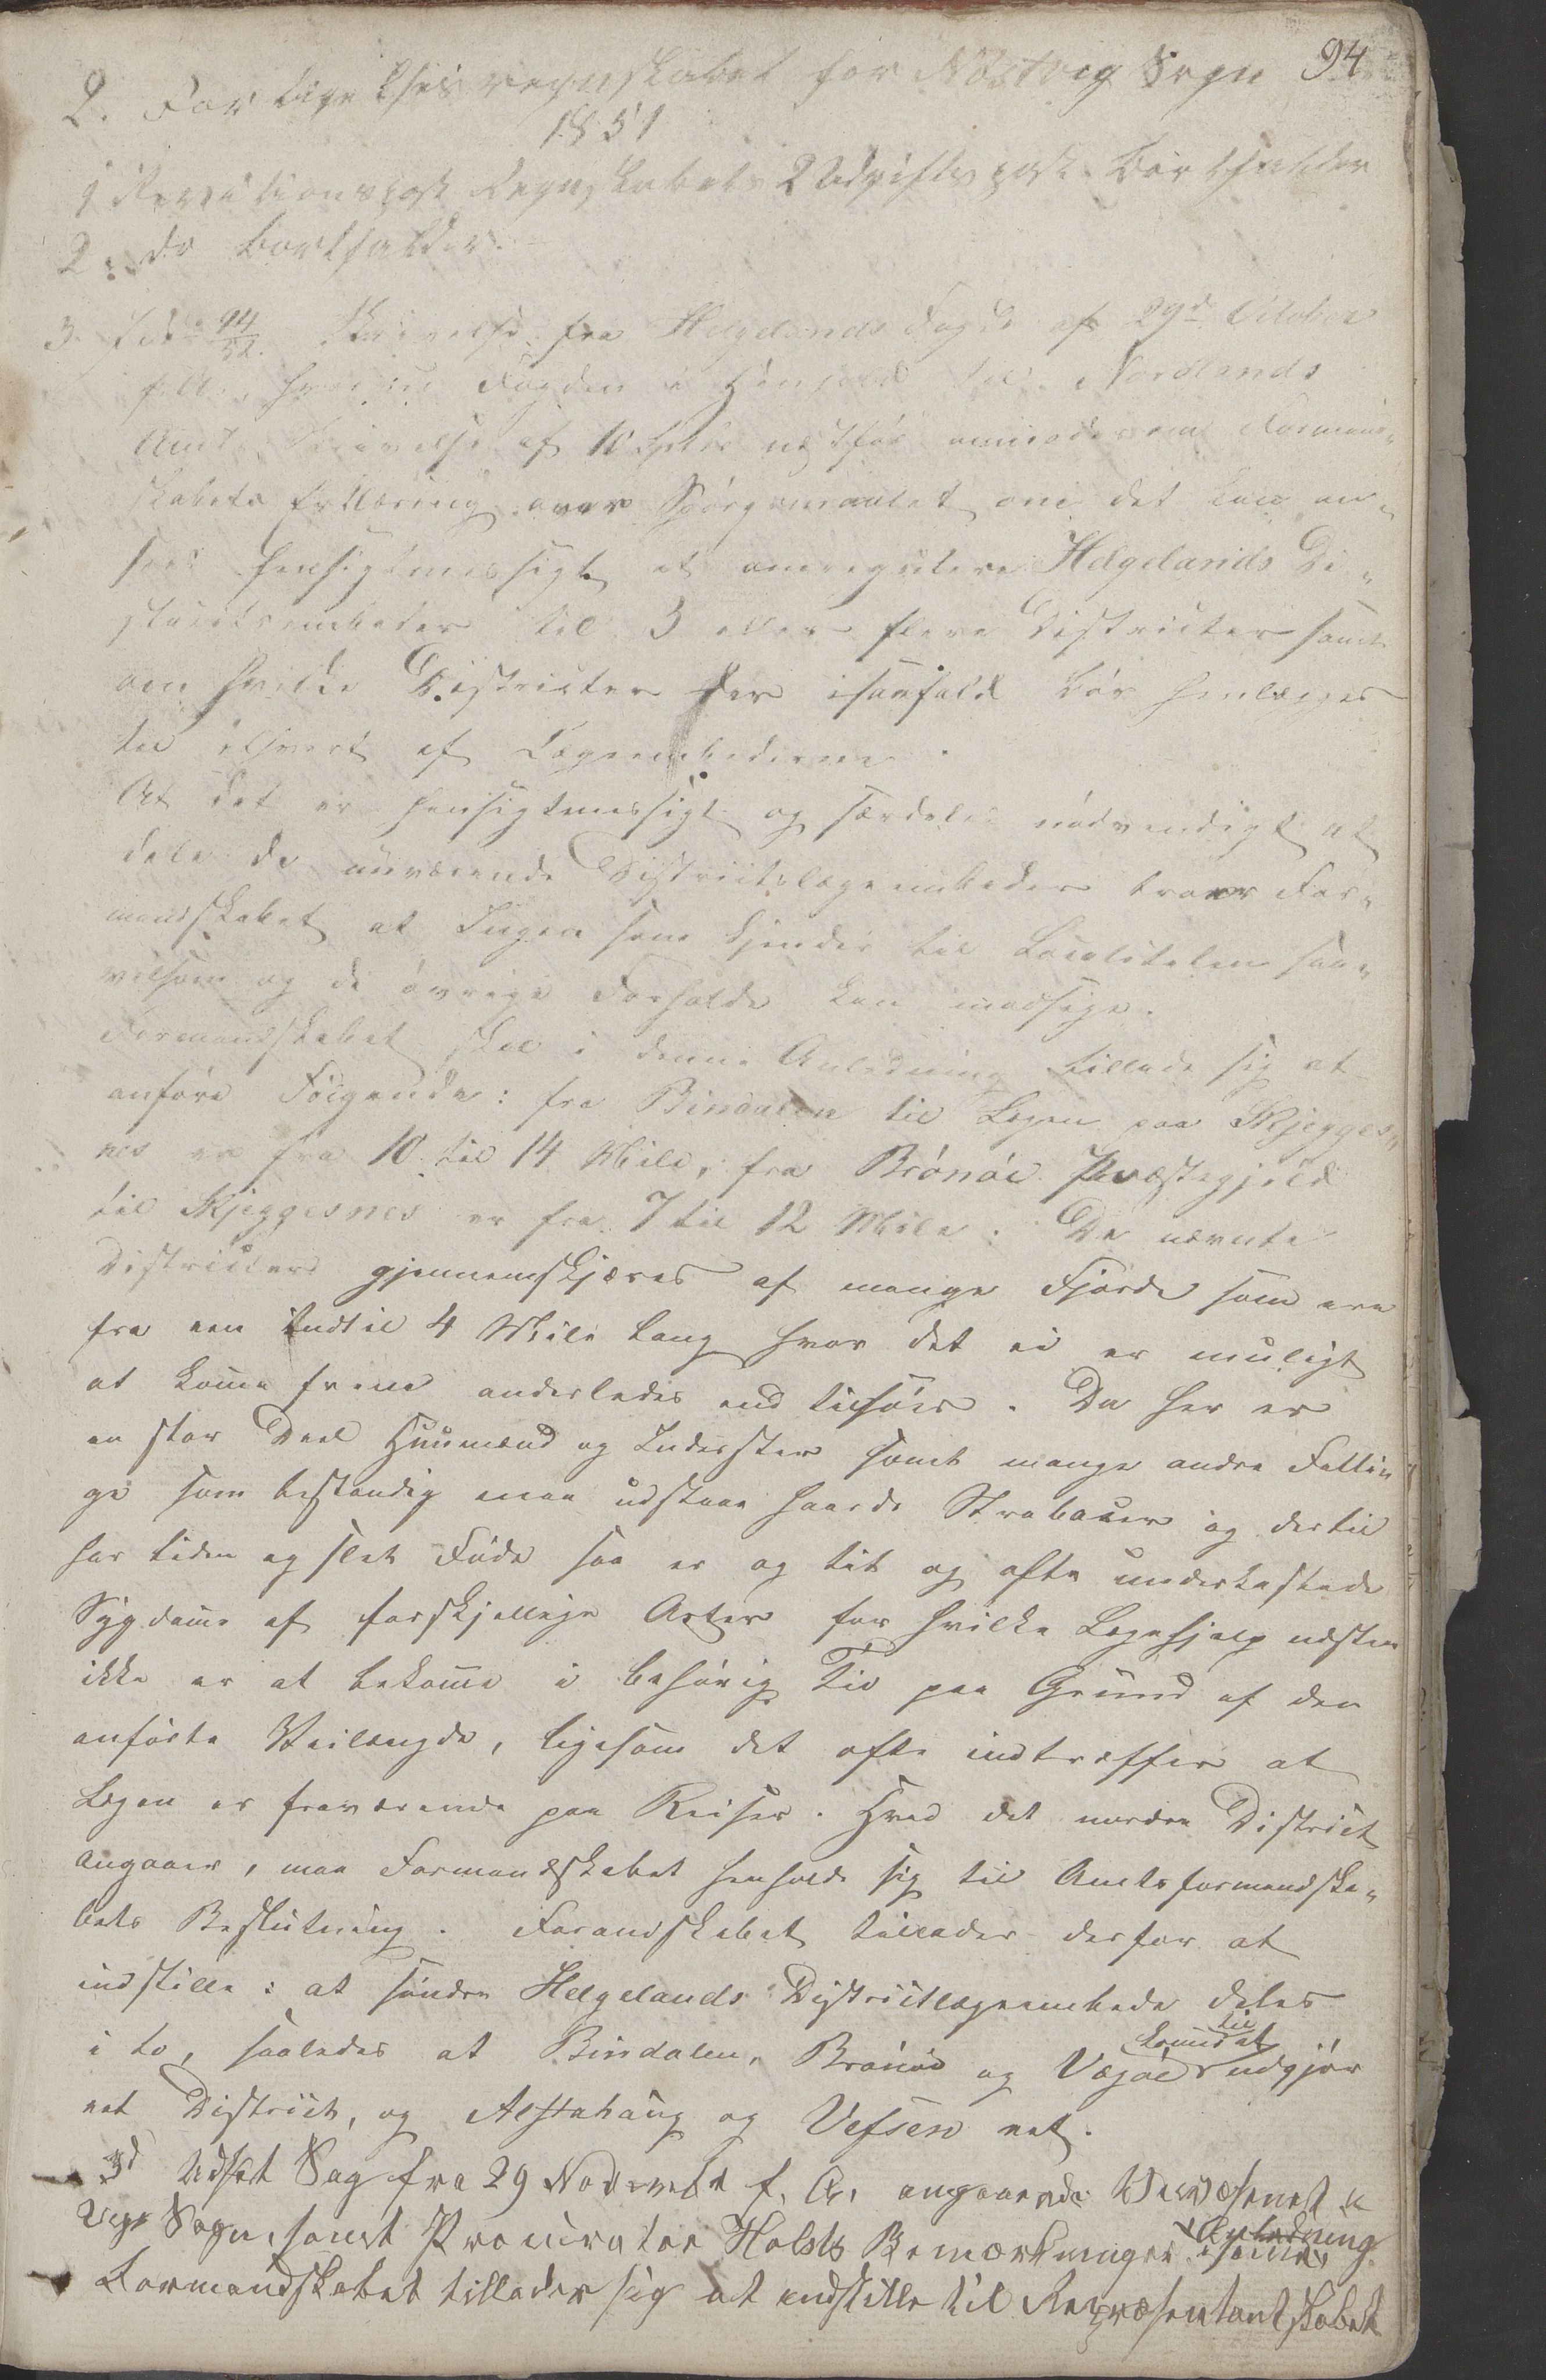 94
2. Forligelsesregnskabet for Nøstvig Sogn
1851
1 Revisionspost Regnskabets 2 Udgiftspost bortfalder
2. do bortfalder.
3. 94/52. Skrivelse fra Helgelands Fogde af 29d October
f. A., hvorved Fogden i Henhold til Nordlands
Amts Skrivelse af 10 næstfør om Formand-
skabets Erklæring over Spørgsmaalet om det kan an-
sees hensigtmessigt at omregulere Helgelands Di-
strictsembeder til 3 eller flere Districter samt
om hvilke Districter der isaafald bør henlægges
til ethvert af Lægeembederne.
At det er hensigtmessigt og særdeles nødvendigt at
dele de nuværende Districtslægeembeder troer For-
mandskabet at Ingen som kjender til Localiteten saa-
velsom og de øvrige Forholde kan modsige.
Formandskabet skal i denne Anledning tillade sig at
anføre Følgende: fra Bindalen til Legen paa Skjegges-
nes er fra 10 til 14 Mile, fra Brønøe Præstegjeld
til Skjeggesnes er fra 7 til 12 Mile. De nævnte
Districter gjennemskjæres af mange Fjorde som ere
fra een indtil 4 Mile lang hvor det ei er muligt
at komme frem anderledes end tilsøes. Da her er
en stor Deel Huusmænd og Inderster samt mange andre Fatti
ge som bestandig maa udstaae haarde Strabaser og dertil
har liden og slet Føde saa er og tit og ofte underkastede
Sygdomme af forskjellige Arter for hvilke Legehjelp udsten
ikke er at bekomme i behørig Tid paa Grund af den
anførte Veilængde, ligesom det ofte indtræffer at
Legen er fraværende paa Reiser. Hvad det nordre District
angaaer, maa Formandskabet henholde sig til Amtsformandska-
bets Beslutning. Forandskabet tillader derfor at
indstille: at søndre Helgelands Districtlægeembede deles
i to, saaledes at Bindalen, Brønøe og Vægøe udgjør
et District, og Alstahaug og Vefsen et.
3d Udsat Sag fra 29 November f. A. angaaende Veivæsenet i
Vegø Sogn, samt Procurator Holsts Bemærkninger
Anledning
Formandskabet tillader sig at indstille til Repræsentantskabet